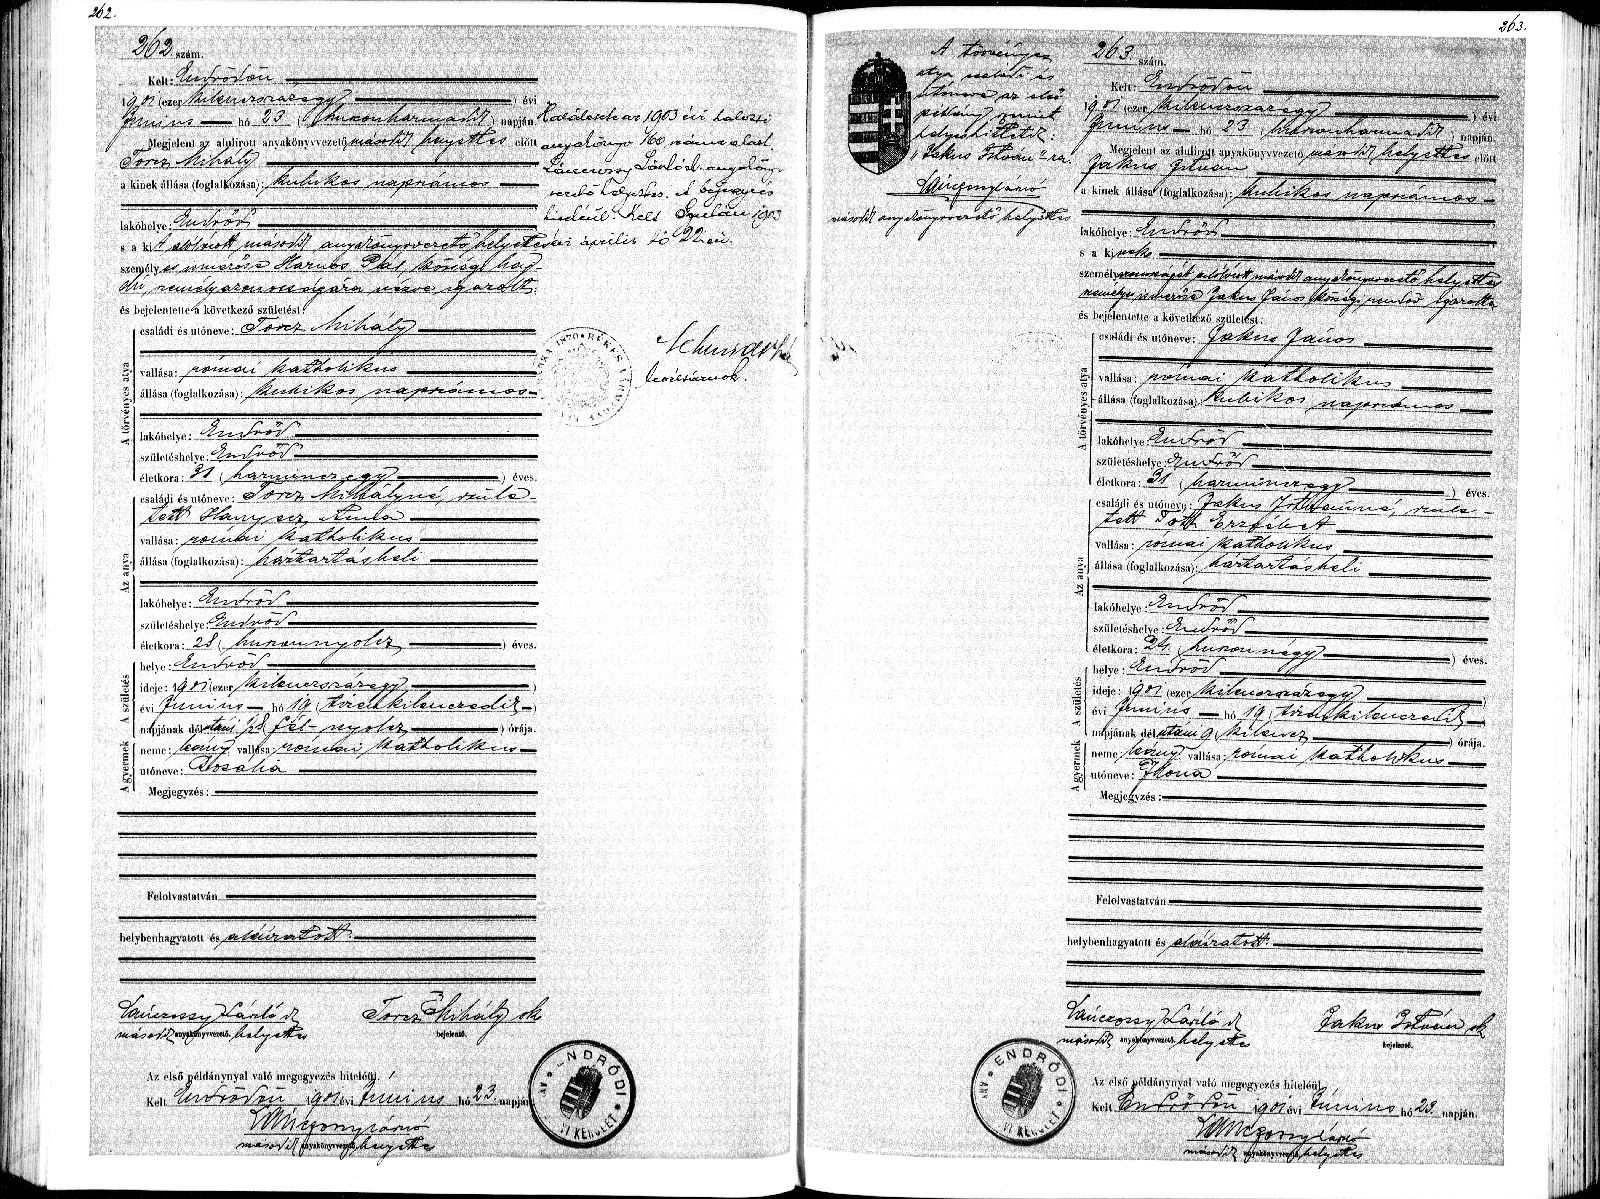 262.
262. szám.
Kelt: Endrődön
1901 (ezer kilenczszázegy) évi
Junius hó 23 (huszonharmadik) napján.
Megjelent az alulirott anyakönyvvezető második helyettes előtt
Torcz Mihály
a kinek állása (foglalkozása): kubikos napszámos
lakóhelye: Endrőd
s a ki alólirott második anyakönyvvezető helyettes
személyes ismerőse Harnos Pál községi
személyazonosságára nézve igazolt,
és bejelentette a következő születést:
A törvényes atya
családi és utóneve: Torcz Mihály
vallása: római katholikus
állása (foglalkozása): kubikos napszámos
lakóhelye: Endrőd
születéshelye: Endrőd
életkora: 31 (harminczegy) éves.
Az anya
családi és utóneve: Torcz Mihályné, szüle-
tett Hanyecz Anna
vallása: római katholikus
állása (foglalkozása): háztartásbeli
lakóhelye: Endrőd
születéshelye: Endrőd
életkora: 28 (huszonnyolcz) éves.
A születés
helye: Endrőd
ideje: 1901 (ezer kilenczszázegy)
évi Junius hó 19 (tizenkilenczedik)
napjának délután 1/28 fél-nyolcz órája.
A gyermek
neme: leány vallása: római katholikus
utóneve: Rosália
Megjegyzés:
Felolvastatván
helybenhagyatott és aláiratott.
Lánczossy László
második anyakönyvvezető. helyettes
Torcz Mihály sk
bejelentő.
Az első példánynyal való megegyezés hiteléül
Kelt Endrődön 1901 évi Junius hó 23. napján
második anyakönyvvezető helyettes
ENDRŐDI
ANYAKÖNYVI KERÜLET
Halálesete az 1903 évi halotti
anyakönyv 160 száma alatt
Lánczossy László anyakönyv-
vezető helyettes. A bejegyzés
hiteléül. Kelt Gyulán 1903
évi április hó 22-én.
levéltárnok.
263.
A törvényes
atya családi és
utóneve az első
példány szerint
helyesbíttetik:
"Jakus István"-ra.
második anyakönyvvezető helyettes
263. szám.
Kelt: Endrődön
1901 (ezer kilenczszázegy) évi
Junius hó 23 (huszonharmadik) napján.
Megjelent az alulirott anyakönyvvezető második helyettes előtt
Jakus István
a kinek állása (foglalkozása): kubikos napszámos
lakóhelye: Endrőd
s a kinek
személyazonosságát alólirott második anyakönyvvezető helyettes
személyes ismerőse Jakus János községi rendőr igazolta
és bejelentette a következő születést:
A törvényes atya
családi és utóneve: Jakus János
vallása: római katholikus
állása (foglalkozása): kubikos napszámos
lakóhelye: Endrőd
születéshelye: Endrőd
életkora: 31 (harminczegy) éves.
Az anya
családi és utóneve: Jakus Istvánné, szüle-
tett Tóth Erzsébet
vallása: római katholikus
állása (foglalkozása): háztartásbeli
lakóhelye: Endrőd
születéshelye: Endrőd
életkora: 24 (huszonnégy) éves.
A születés
helye: Endrőd
ideje: 1901 (ezer kilenczszázegy)
évi Junius hó 19 (tizenkilenczedik)
napjának délután 9 kilencz órája.
A gyermek
neme: leány vallása: római katholikus
utóneve: Ilona
Megjegyzés:
Felolvastatván
helybenhagyatott és aláiratott.
Lánczossy László
második anyakönyvvezető. helyettes
Jakus István sk
bejelentő.
Az első példánynyal való megegyezés hiteléül
Kelt Endrődön 1901 évi Junius hó 23. napján.
második anyakönyvvezető helyettes
ENDRŐDI
ANYAKÖNYVI KERÜLET